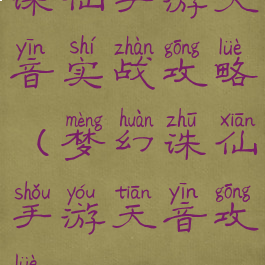 诛仙手游天
yīn shí zhàn gōng lüè
音实战攻略
mèng huàn zhū xiān
（梦幻诛仙
shǒu yóu tiān yīn gōng
手游天音攻
lüè